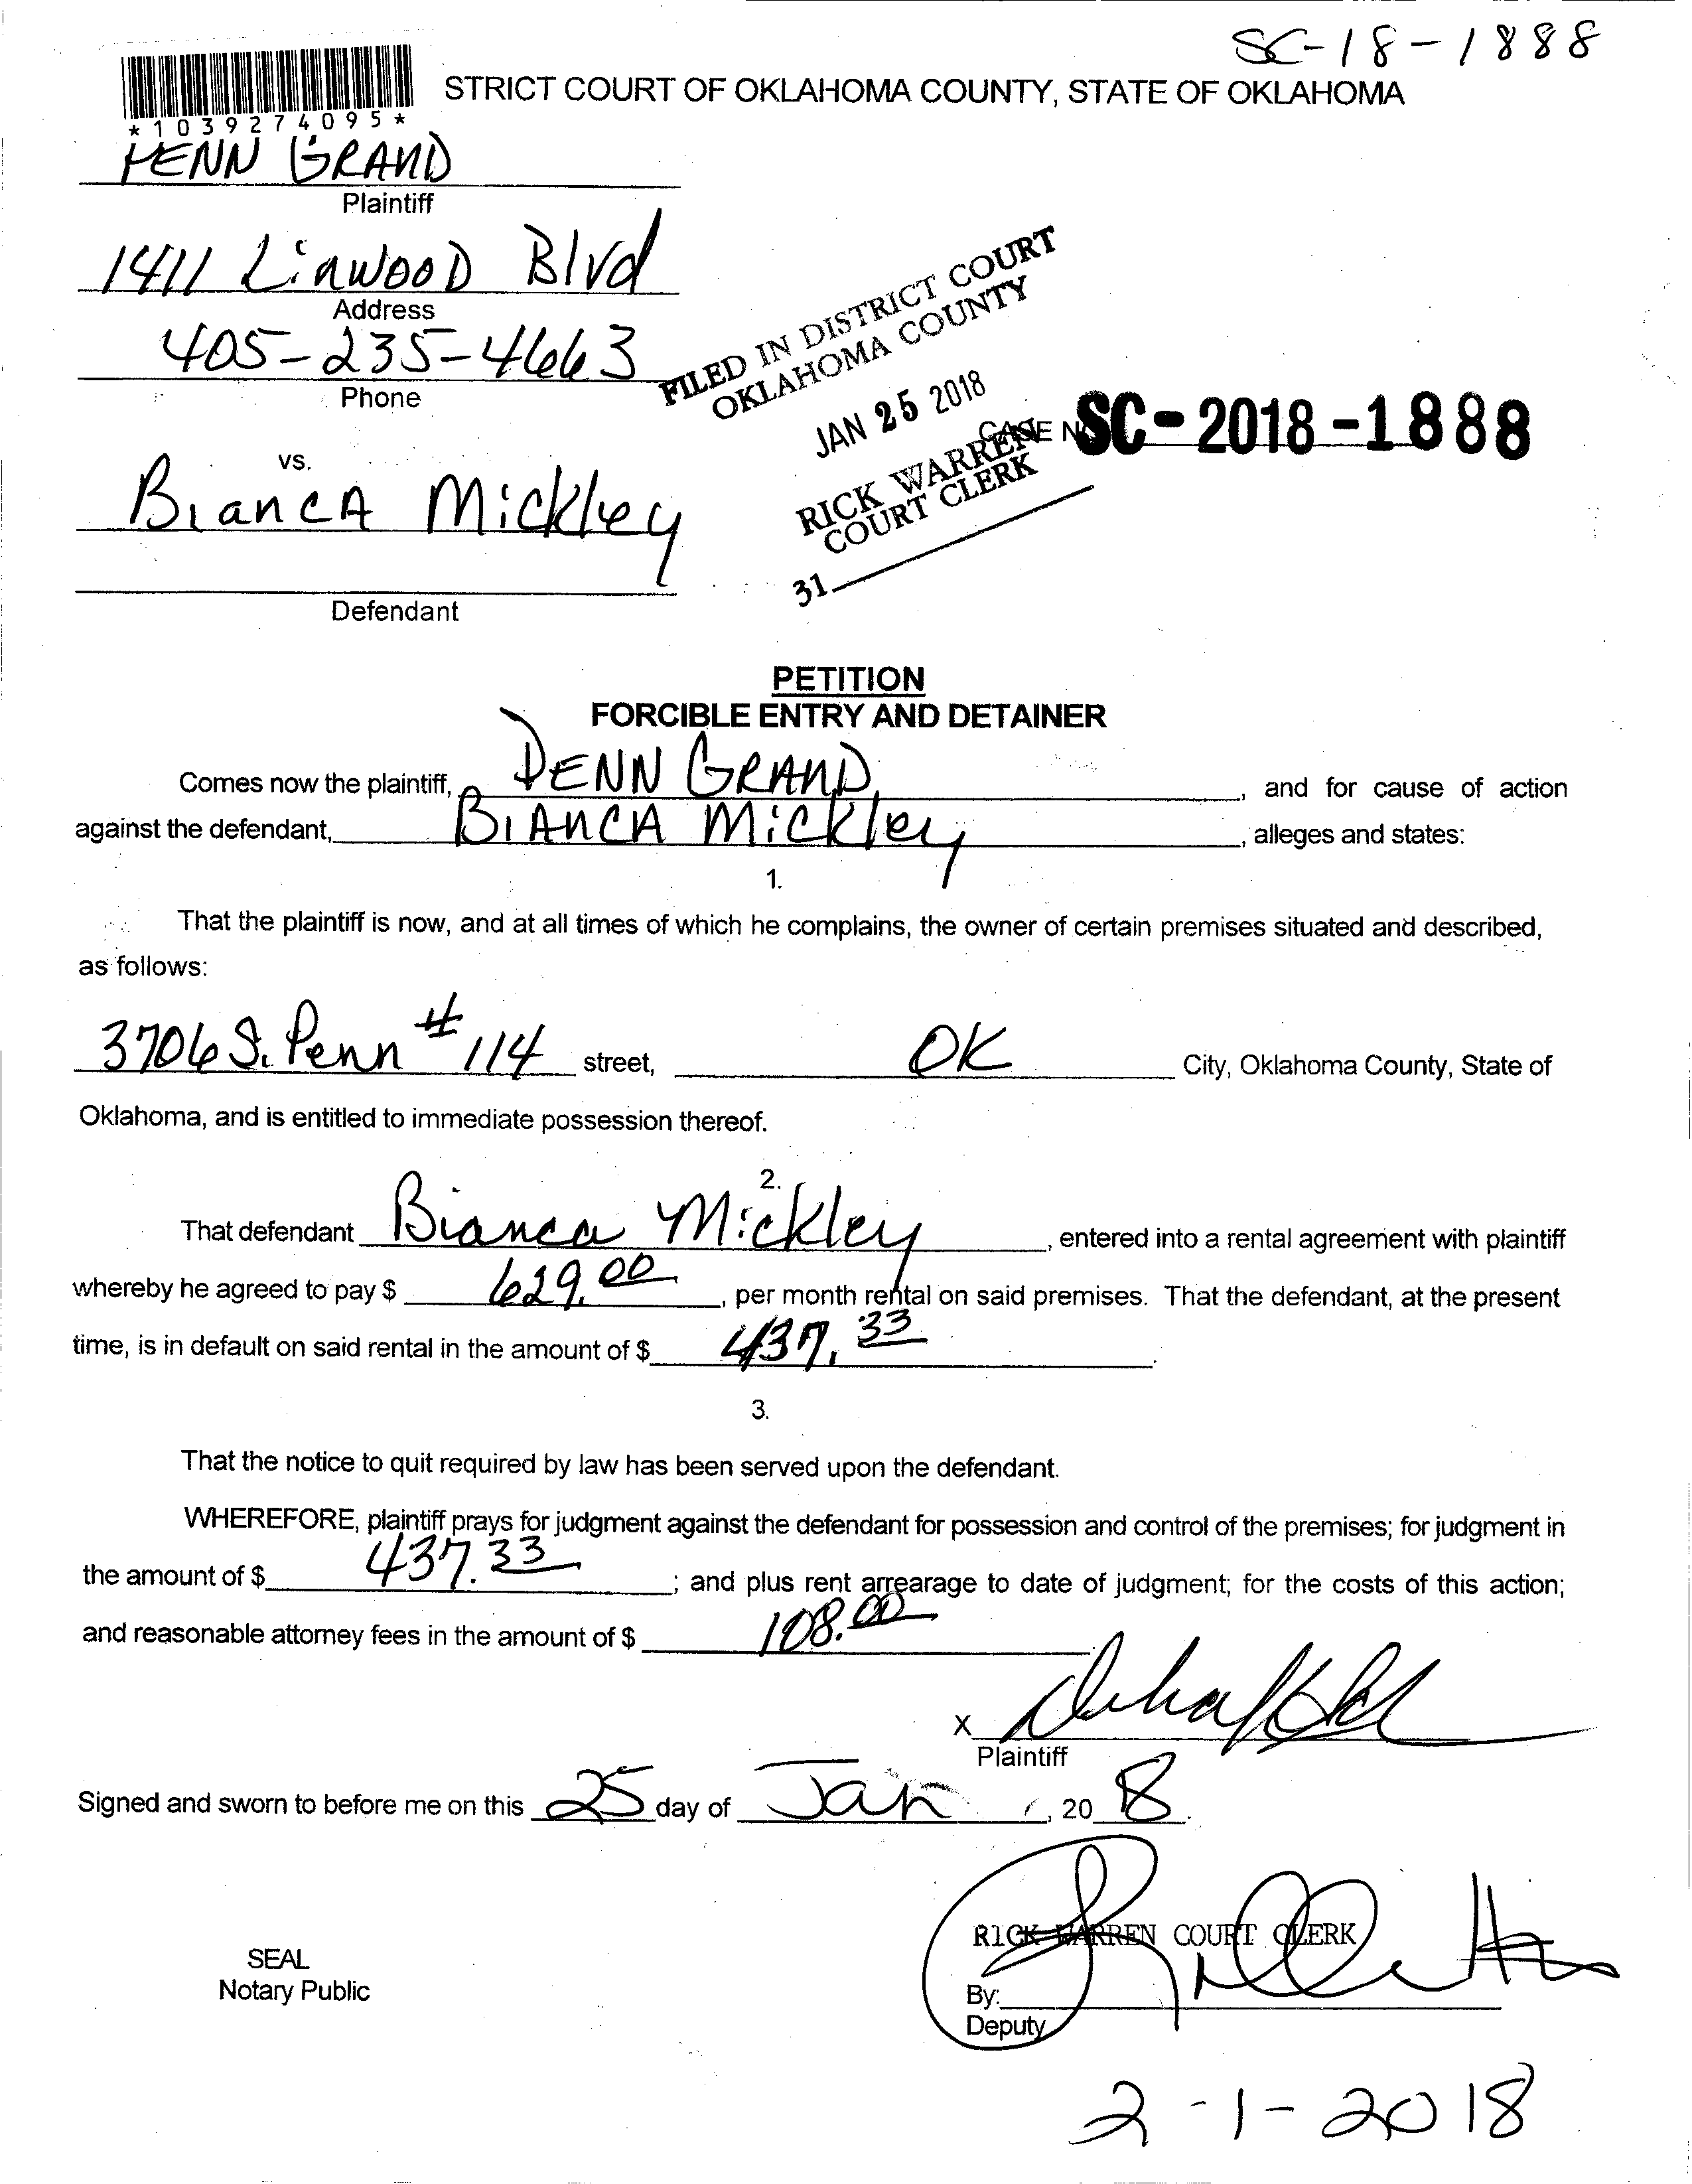 SC-18-1888
STRICT COURT OF OKLAHOMA COUNTY, STATE OF OKLAHOMA
*1039274095*
PENN GRAND
Plaintiff
1411 LinwooD Blvd
Address
405-235-4663
Phone
FILED IN DISTRICT COURT
OKLAHOMA COUNTY
JAN 25 2018
RICK WARREN
COURT CLERK
31
CASE NO SC-2018-1888
vs.
BiancA Mickley
Defendant
PETITION
FORCIBLE ENTRY AND DETAINER
Comes now the plaintiff, PENN GRAND, and for cause of action
against the defendant, BIANCA Mickley, alleges and states:
1.
That the plaintiff is now, and at all times of which he complains, the owner of certain premises situated and described,
as follows:
3706 S. Penn #114 street, OK City, Oklahoma County, State of
Oklahoma, and is entitled to immediate possession thereof.
2.
That defendant Bianca Mickley, entered into a rental agreement with plaintiff
whereby he agreed to pay $ 629.00, per month rental on said premises. That the defendant, at the present
time, is in default on said rental in the amount of $ 437.33.
3.
That the notice to quit required by law has been served upon the defendant.
WHEREFORE, plaintiff prays for judgment against the defendant for possession and control of the premises; for judgment in
the amount of $ 437.33; and plus rent arrearage to date of judgment; for the costs of this action;
and reasonable attorney fees in the amount of $ 108.00
X
Plaintiff
Signed and sworn to before me on this 25 day of Jan, 20 18.
RICK WARREN COURT CLERK
SEAL
Notary Public
By:
Deputy
2-1-2018